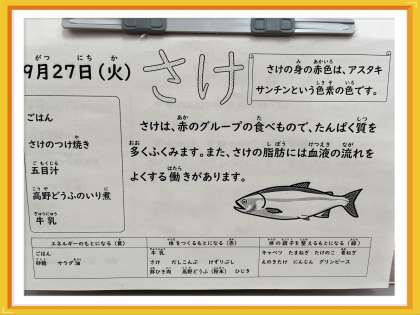 9月27日(火)
さけ
さけの身の赤色は、アスタキ
サンチンという色素の色です。
ごはん
さけのつけ焼き
五目汁
高野どうふのいり煮
牛乳
さけは、赤のグループの食べもので、たんぱく質を
多くふくみます。また、さけの脂肪には血液の流れを
よくする働きがあります。
エネルギーのもとになる（黄）
ごはん
砂糖 サラダ油
体をつくるもとになる（赤）
牛乳
さけ だしこんぶ けずりぶし
豚ひき肉 高野どうふ（粉末） ひじき
体の調子を整えるもとになる（緑）
キャベツ たまねぎ たけのこ 長ねぎ
えのきたけ にんじん グリンピース